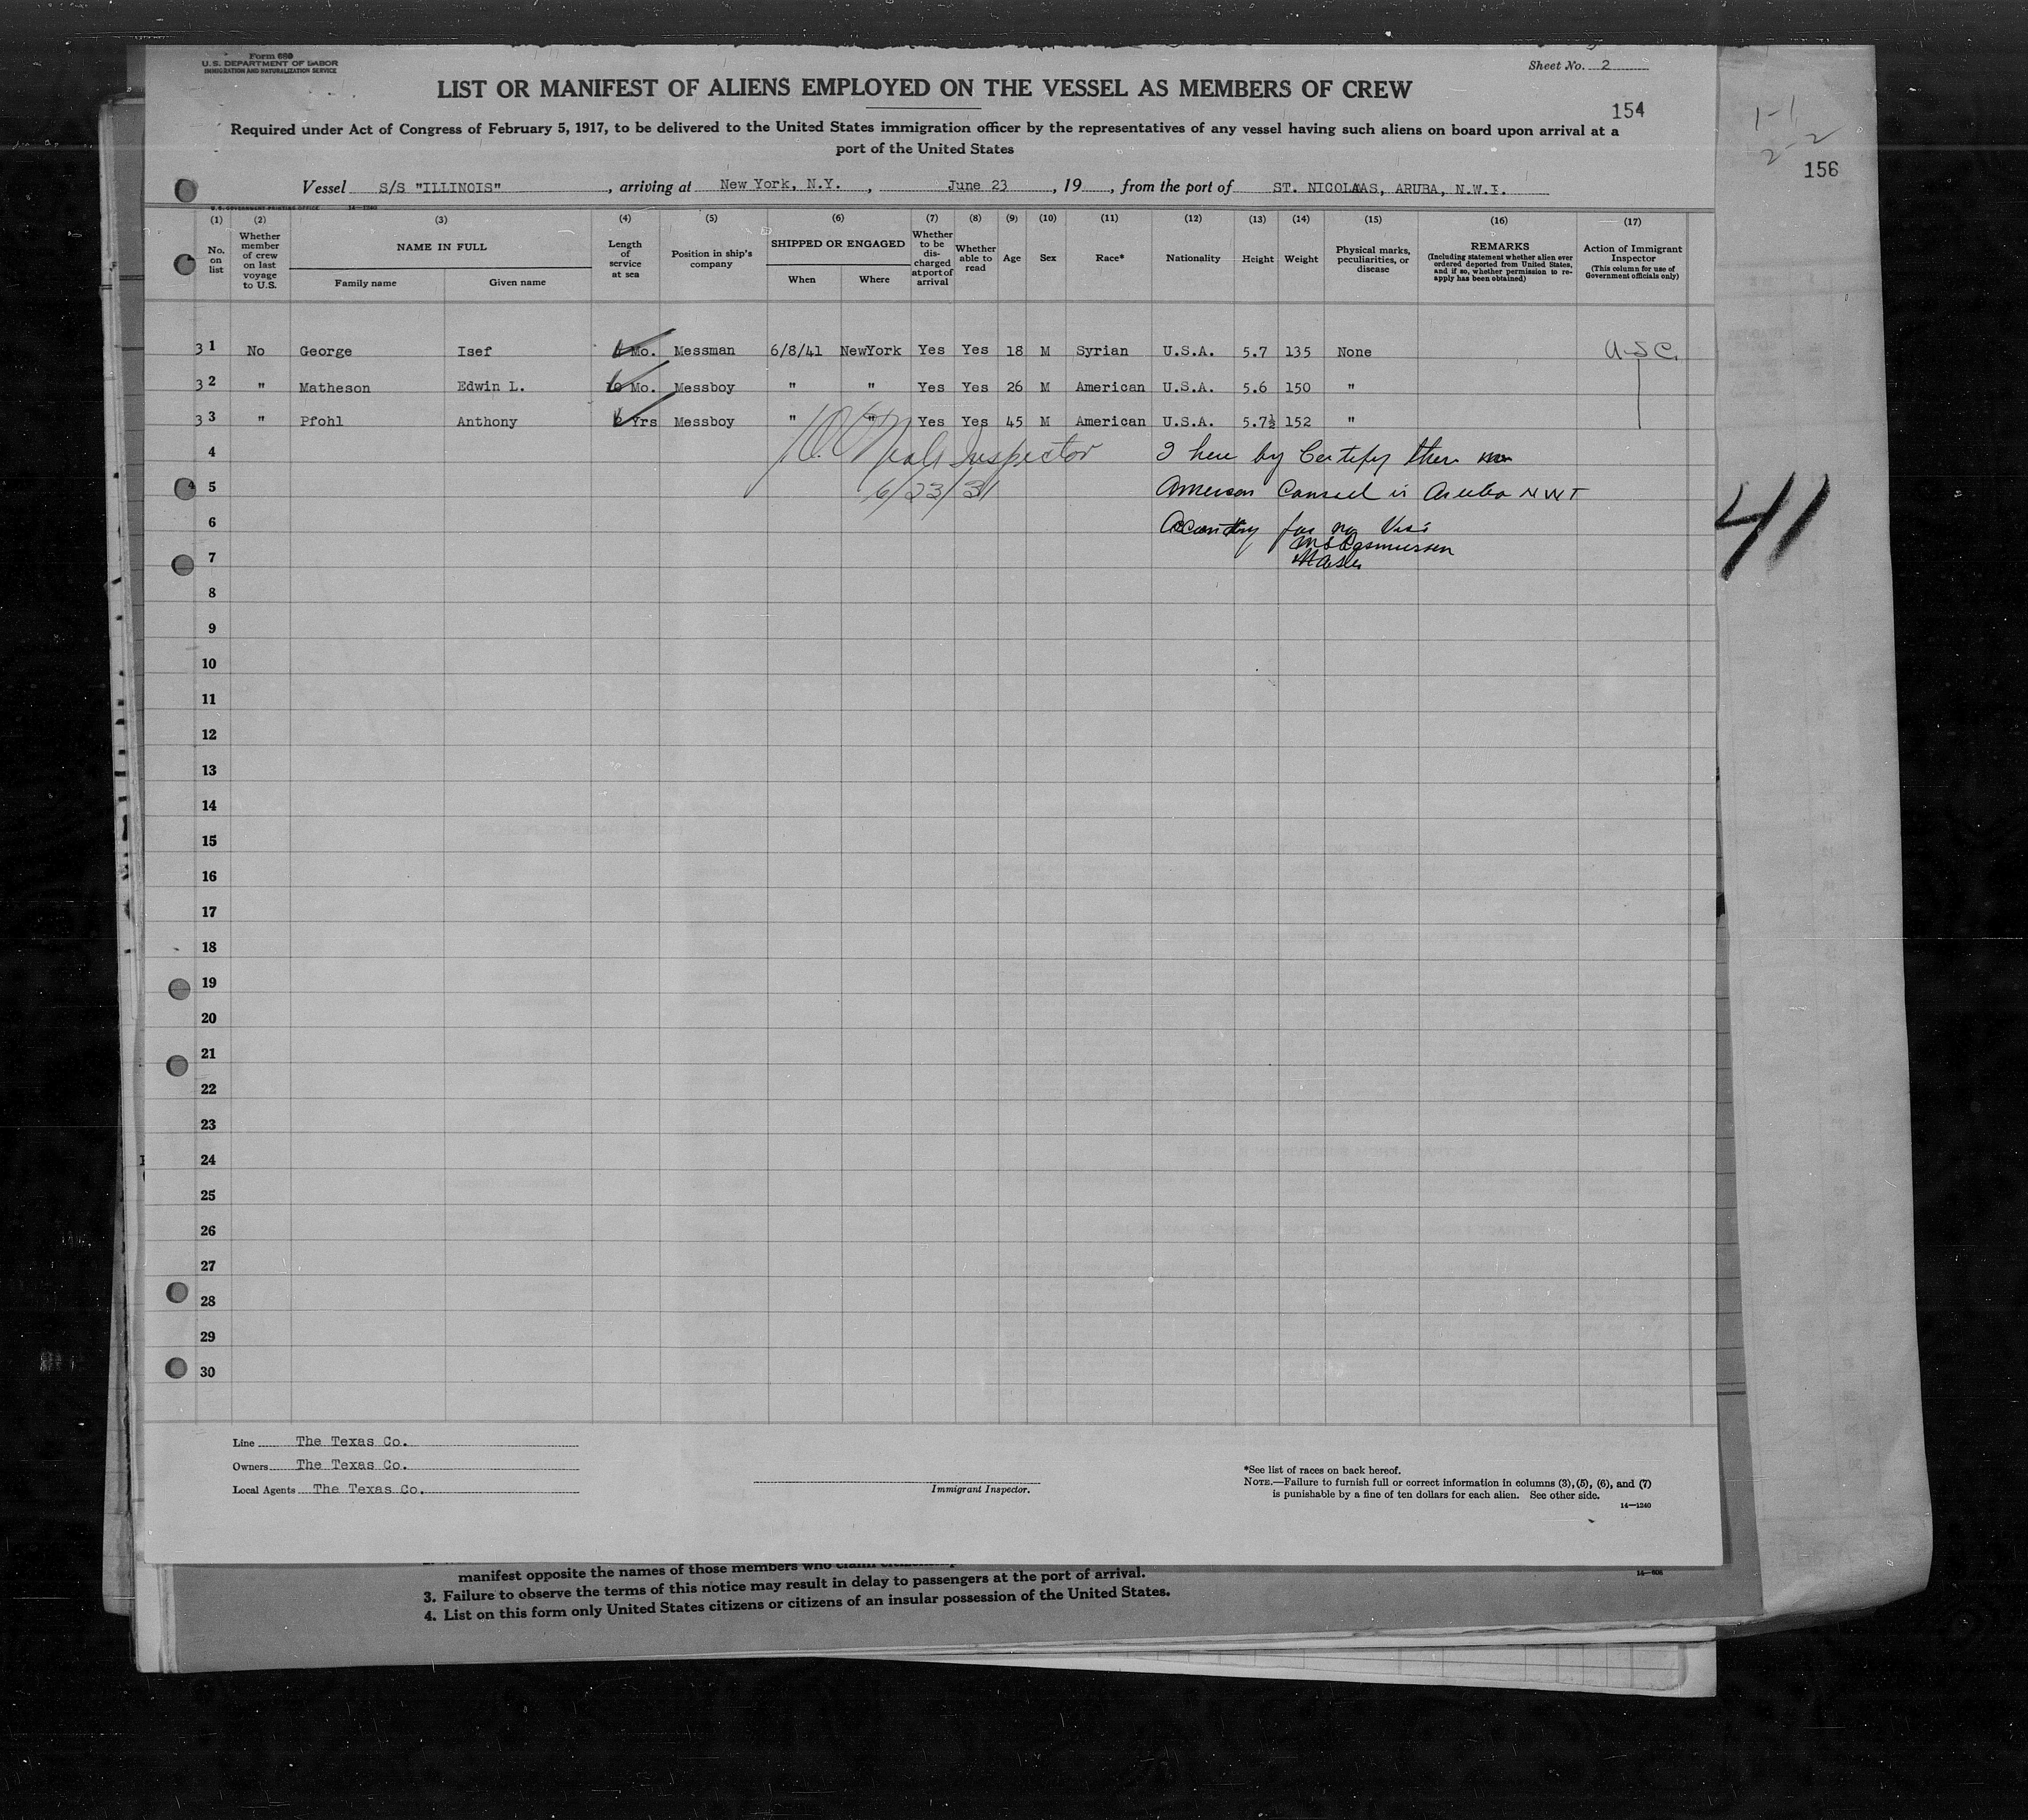 Form 680
U.S. DEPARTMENT OF LABOR
IMMIGRATION AND NATURALIZATION SERVICE
Sheet No. 2
LIST OR MANIFEST OF ALIENS EMPLOYED ON THE VESSEL AS MEMBERS OF CREW
154
1-1
2-2
156
Required under Act of Congress of February 5, 1917, to be delivered to the United States immigration officer by the representatives of any vessel having such aliens on board upon arrival at a
port of the United States
Vessel S/S "ILLINOIS" , arriving at New York, N.Y. , June 23 , 19 , from the port of ST. NICOLAAS, ARUBA, N.W.I.
U.S. GOVERNMENT PRINTING OFFICE 14—1240
(1) (2) (3) (4) (5) (6) (7) (8) (9) (10) (11) (12) (13) (14) (15) (16) (17)
No. on list
Whether member of crew on last voyage to U.S.
NAME IN FULL
Family name Given name
Length of service at sea
Position in ship's company
SHIPPED OR ENGAGED
When Where
Whether to be discharged at port of arrival
Whether able to read
Age
Sex
Race*
Nationality
Height
Weight
Physical marks, peculiarities, or disease
REMARKS
(Including statement whether alien ever ordered deported from United States, and if so, whether permission to reapply has been obtained)
Action of Immigrant Inspector
(This column for use of Government officials only)
31 No George Isef Mo. Messman 6/8/41 NewYork Yes Yes 18 M Syrian U.S.A. 5.7 135 None U.S.C.
32 " Matheson Edwin L. 10 Mo. Messboy " " Yes Yes 26 M American U.S.A. 5.6 150 "
33 " Pfohl Anthony Yrs Messboy " " Yes Yes 45 M American U.S.A. 5.7½ 152 "
4 Inspector I here by Certify ther
5 6/23/31 in Aruba NWI
6 for no
M S Rasmussen
7 Master
41
8
9
10
11
12
13
14
15
16
17
18
19
20
21
22
23
24
25
26
27
28
29
30
Line The Texas Co.
Owners The Texas Co.
Local Agents The Texas Co.
Immigrant Inspector.
*See list of races on back hereof.
NOTE.—Failure to furnish full or correct information in columns (3), (5), (6), and (7)
is punishable by a fine of ten dollars for each alien. See other side.
14—1240
manifest opposite the names of those members who claim
3. Failure to observe the terms of this notice may result in delay to passengers at the port of arrival.
4. List on this form only United States citizens or citizens of an insular possession of the United States.